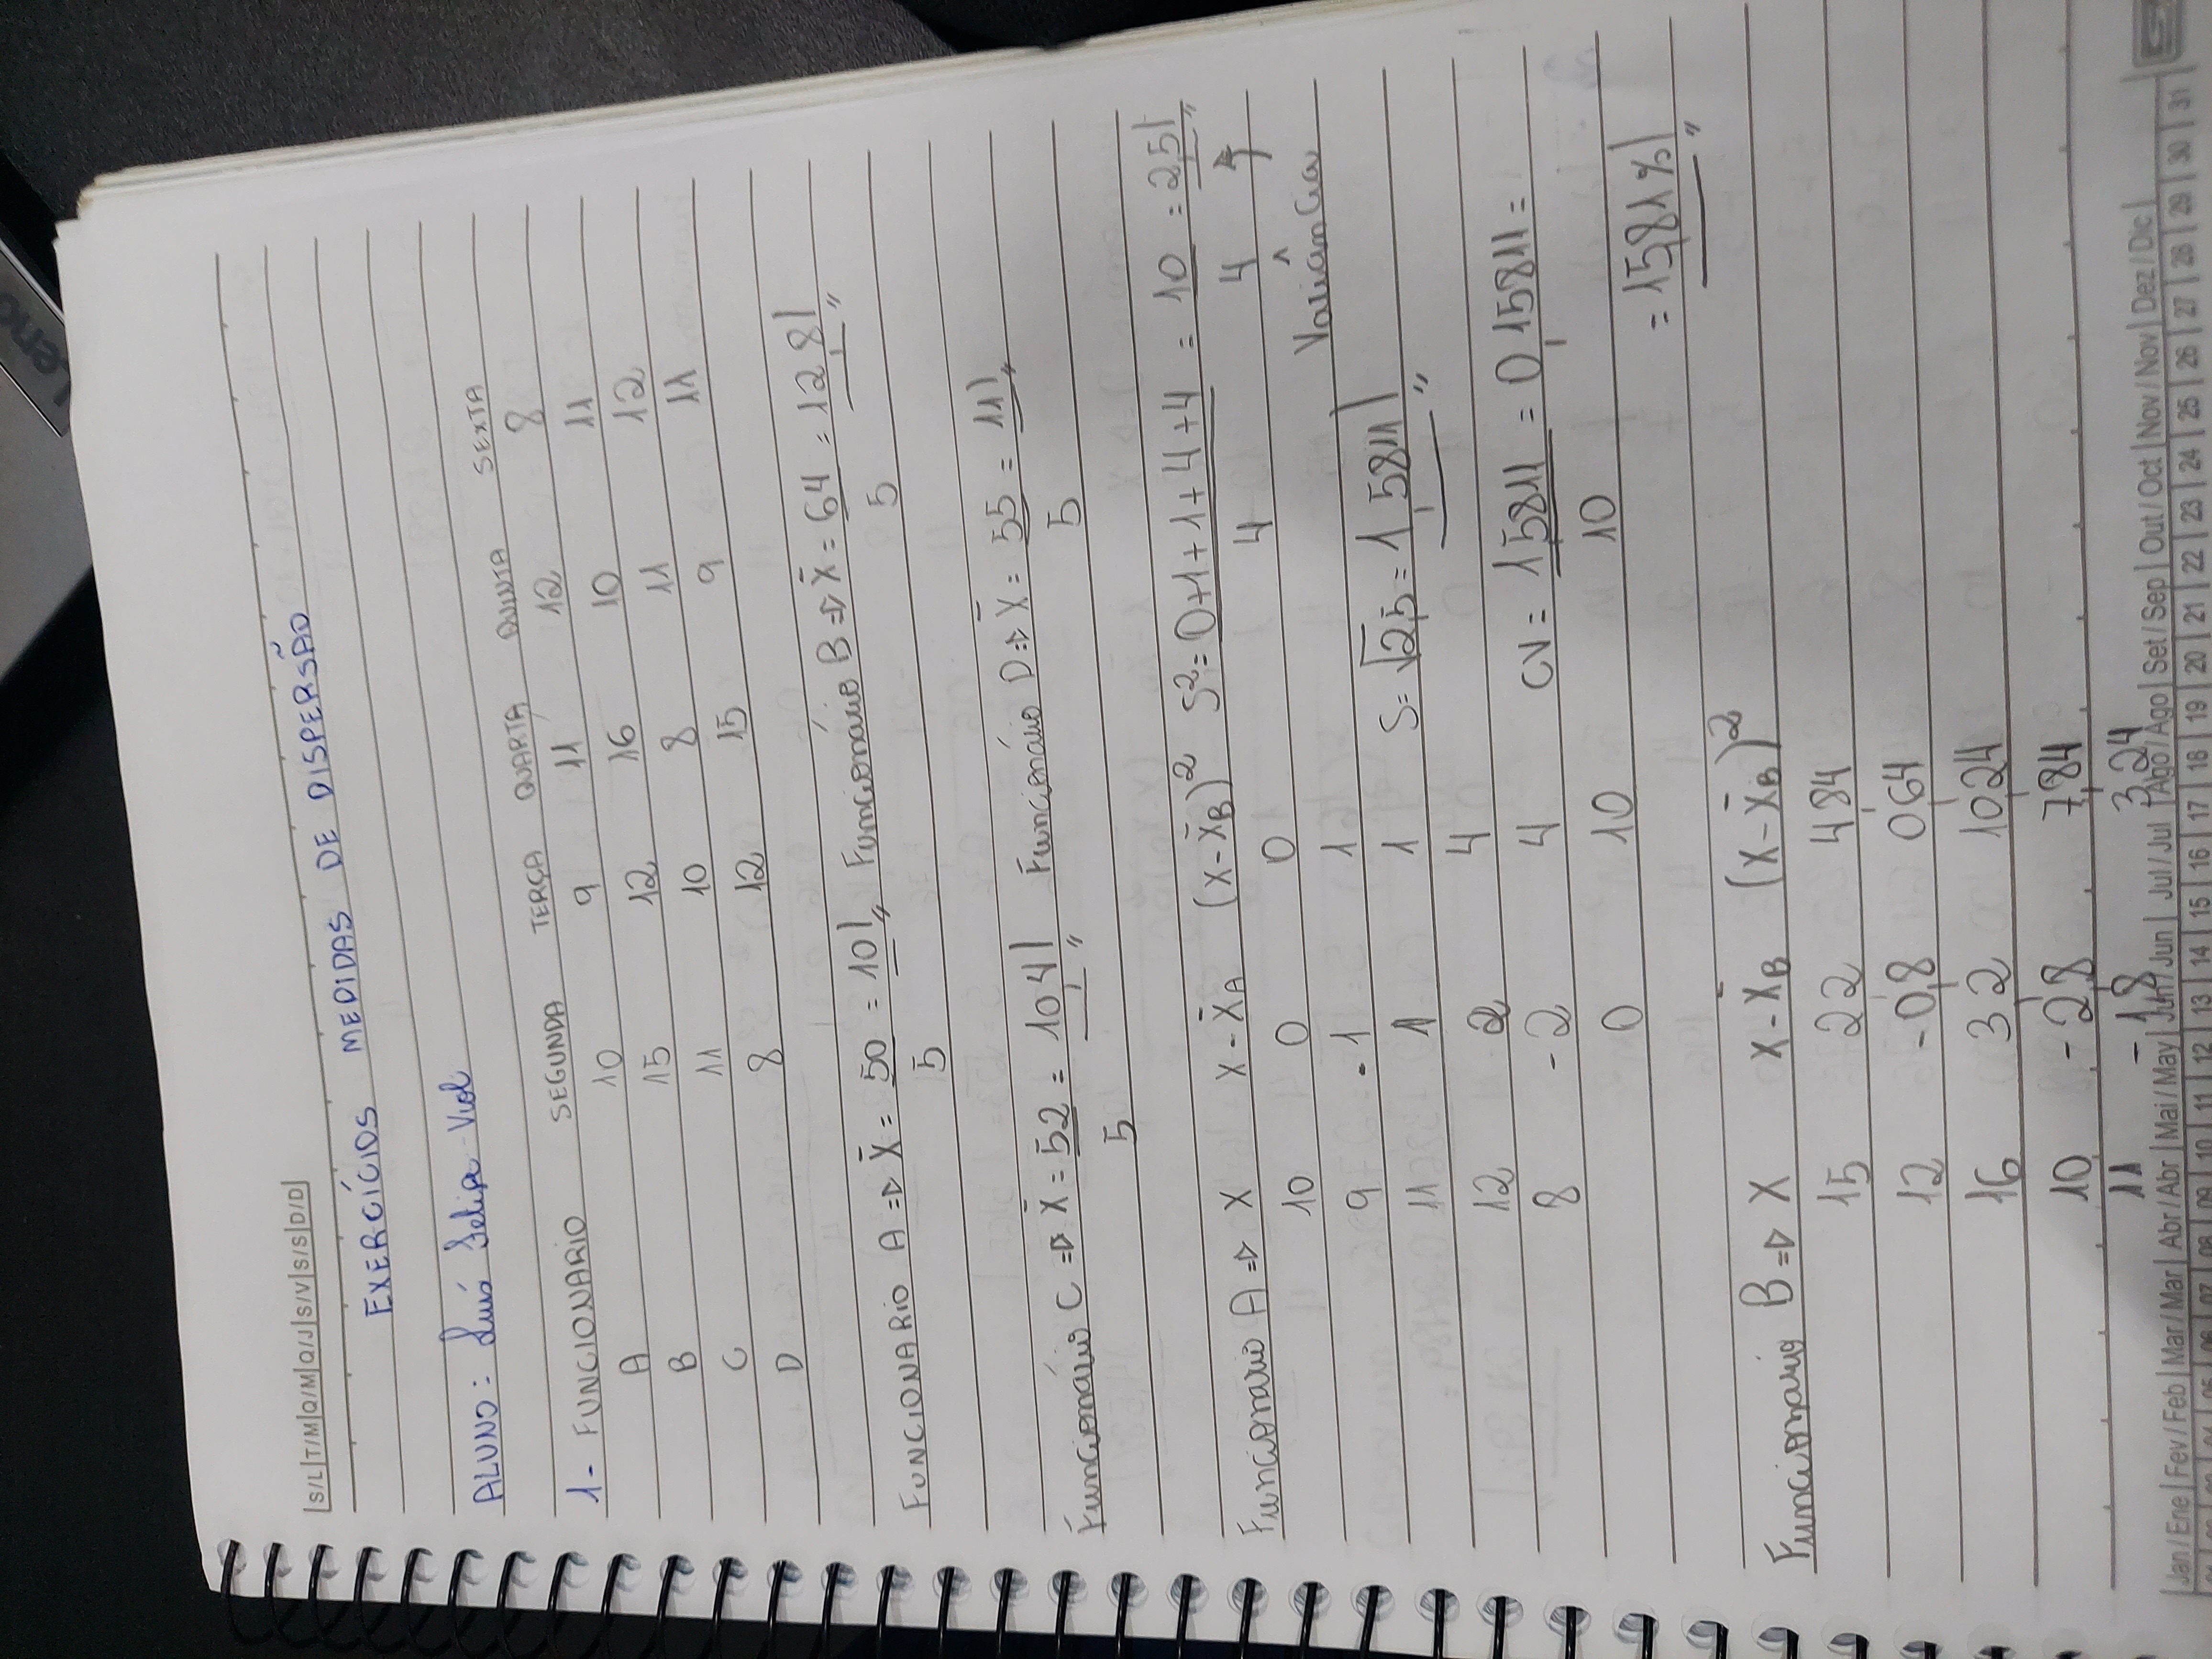 Leno
|S/L|T/M|Q/M|Q/J|S/V|S/S|D/D|
EXERCÍCIOS MEDIDAS DE DISPERSÃO
ALUNO: Luís Felipe Viol
1- FUNCIONARIO SEGUNDA TERÇA QUARTA QUINTA SEXTA
A 10 9 11 12 8
B 15 12 16 10 11
C 11 10 8 11 12
D 8 12 15 9 11
FUNCIONARIO A => X̄ = 50 = 10 Funcionário B => X̄ = 64 = 12,8
5 5
Funcionário C => X̄ = 52 = 10,4 Funcionário D => X̄ = 55 = 11
5 5
Funcionario A => X X - X̄A (X - X̄B)² S² = 0+1+1+4+4 = 10 = 2,5
10 0 0 4 4
Variância
9 -1 1
11 1 1 S = √2,5 = 1,5811
12 2 4
8 -2 4 CV = 1,5811 = 0,15811 =
0 10 10
= 15,81%
Funcionario B => X X - X̄B (X - X̄B)²
15 2,2 4,84
12 -0,8 0,64
16 3,2 10,24
10 -2,8 7,84
11 -1,8 3,24
|Jan/Ene|Fev/Feb|Mar/Mar|Abr/Abr|Mai/May|Jun/Jun|Jul/Jul|Ago/Ago|Set/Sep|Out/Oct|Nov/Nov|Dez/Dic|
06 07 08 09 10 11 12 13 14 15 16 17 18 19 20 21 22 23 24 25 26 27 28 29 30 31